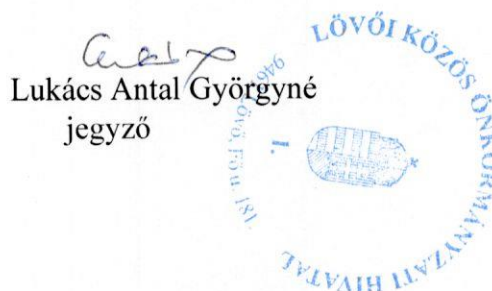 Lukács Antal Györgyné
jegyző
LÖVŐI KÖZÖS ÖNKORMÁNYZATI HIVATAL
Lövő, Fő u. 181
I.